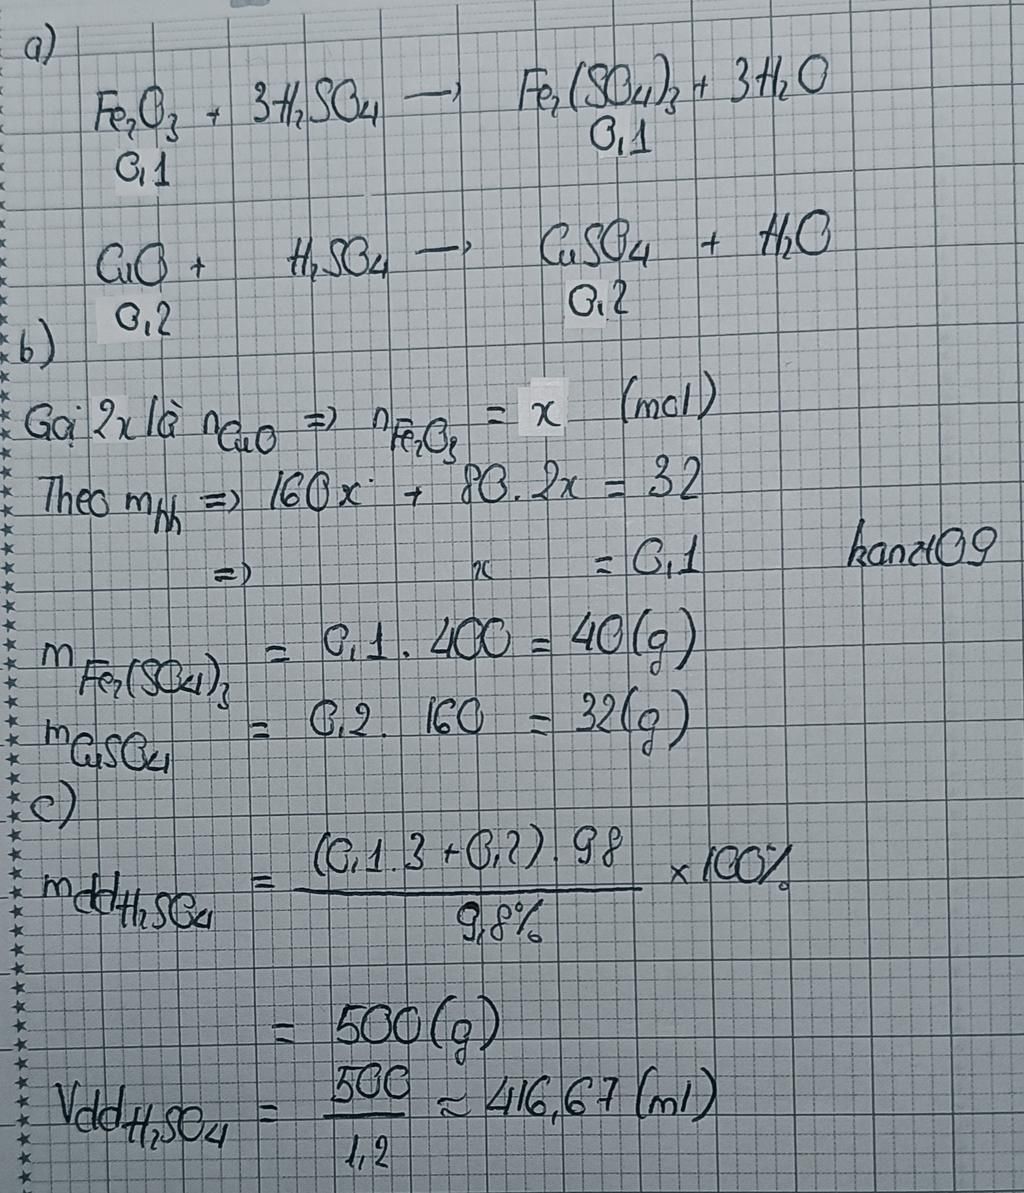 a)
Fe₂O₃ + 3H₂SO₄ → Fe₂(SO₄)₃ + 3H₂O
0,1 0,1
CuO + H₂SO₄ → CuSO₄ + H₂O
0,2 0,2
b)
Gọi 2x là nCuO => nFe₂O₃ = x (mol)
Theo mhh => 160x + 80. 2x = 32
=> x = 0,1 hanzt09
mFe₂(SO₄)₃ = 0,1. 400 = 40(g)
mCuSO₄ = 0,2. 160 = 32(g)
c)
mddH₂SO₄ = (0,1.3 + 0,2). 98 / 9,8% × 100%
= 500(g)
VddH₂SO₄ = 500 / 1,2 ≈ 416,67 (ml)